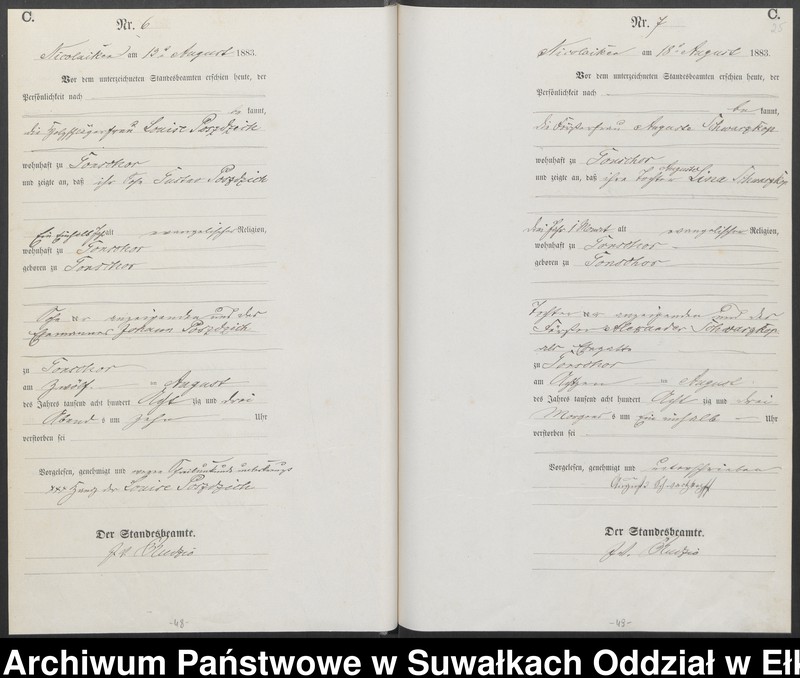 C.
Nr. 6
Nicolaiken am 13ⁿ August 1883.
Vor dem unterzeichneten Standesbeamten erschien heute, der
Persönlichkeit nach
be kannt,
die frau Louise
wohnhaft zu Tonschor
und zeigte an, daß ihr Sohn Gustav
Ein einhalb Jahr alt evangelischer Religion,
wohnhaft zu Tonschor
geboren zu Tonschor
Sohn der anzeigenden und des
Ehemannes Johann
zu Tonschor
am Zwölf ten August
des Jahres tausend acht hundert Acht zig und drei
Abend s um Zehn Uhr
verstorben sei
Vorgelesen, genehmigt und wegen
xxx der Louise
Der Standesbeamte.
C.
25
Nr. 7
Nicolaiken am 18ⁿ August 1883.
Vor dem unterzeichneten Standesbeamten erschien heute, der
Persönlichkeit nach
be kannt,
die Försterfrau Auguste Schwarzkop
wohnhaft zu Tonschor
Auguste
und zeigte an, daß ihre Tochter Lina Schwarzkop
drei Jahr 1 Monat alt evangelischer Religion,
wohnhaft zu Tonschor
geboren zu Tonschor
Tochter der anzeigenden und des
Förster Alexander Schwarzkop
zu Tonschor
am ten August
des Jahres tausend acht hundert Acht zig und drei
Morgens um Ein einhalb Uhr
verstorben sei
Vorgelesen, genehmigt und unterschrieben
Der Standesbeamte.
-48-
-49-
Archiwum Państwowe w Suwałkach Oddział w Ełk